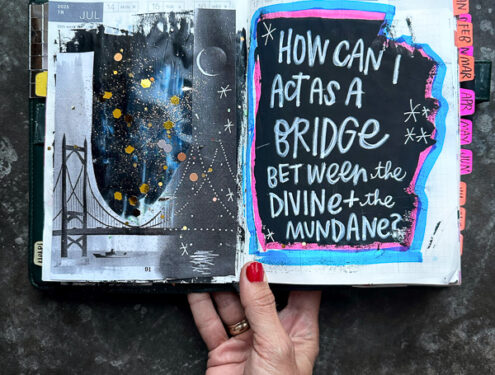 2025
JUL
14
15
91
HOW CAN I
ACT AS A
BRIDGE
BETWEEN the
DIVINE + the
MUNDANE?
FEB
MAR
APR
MAY
JUN